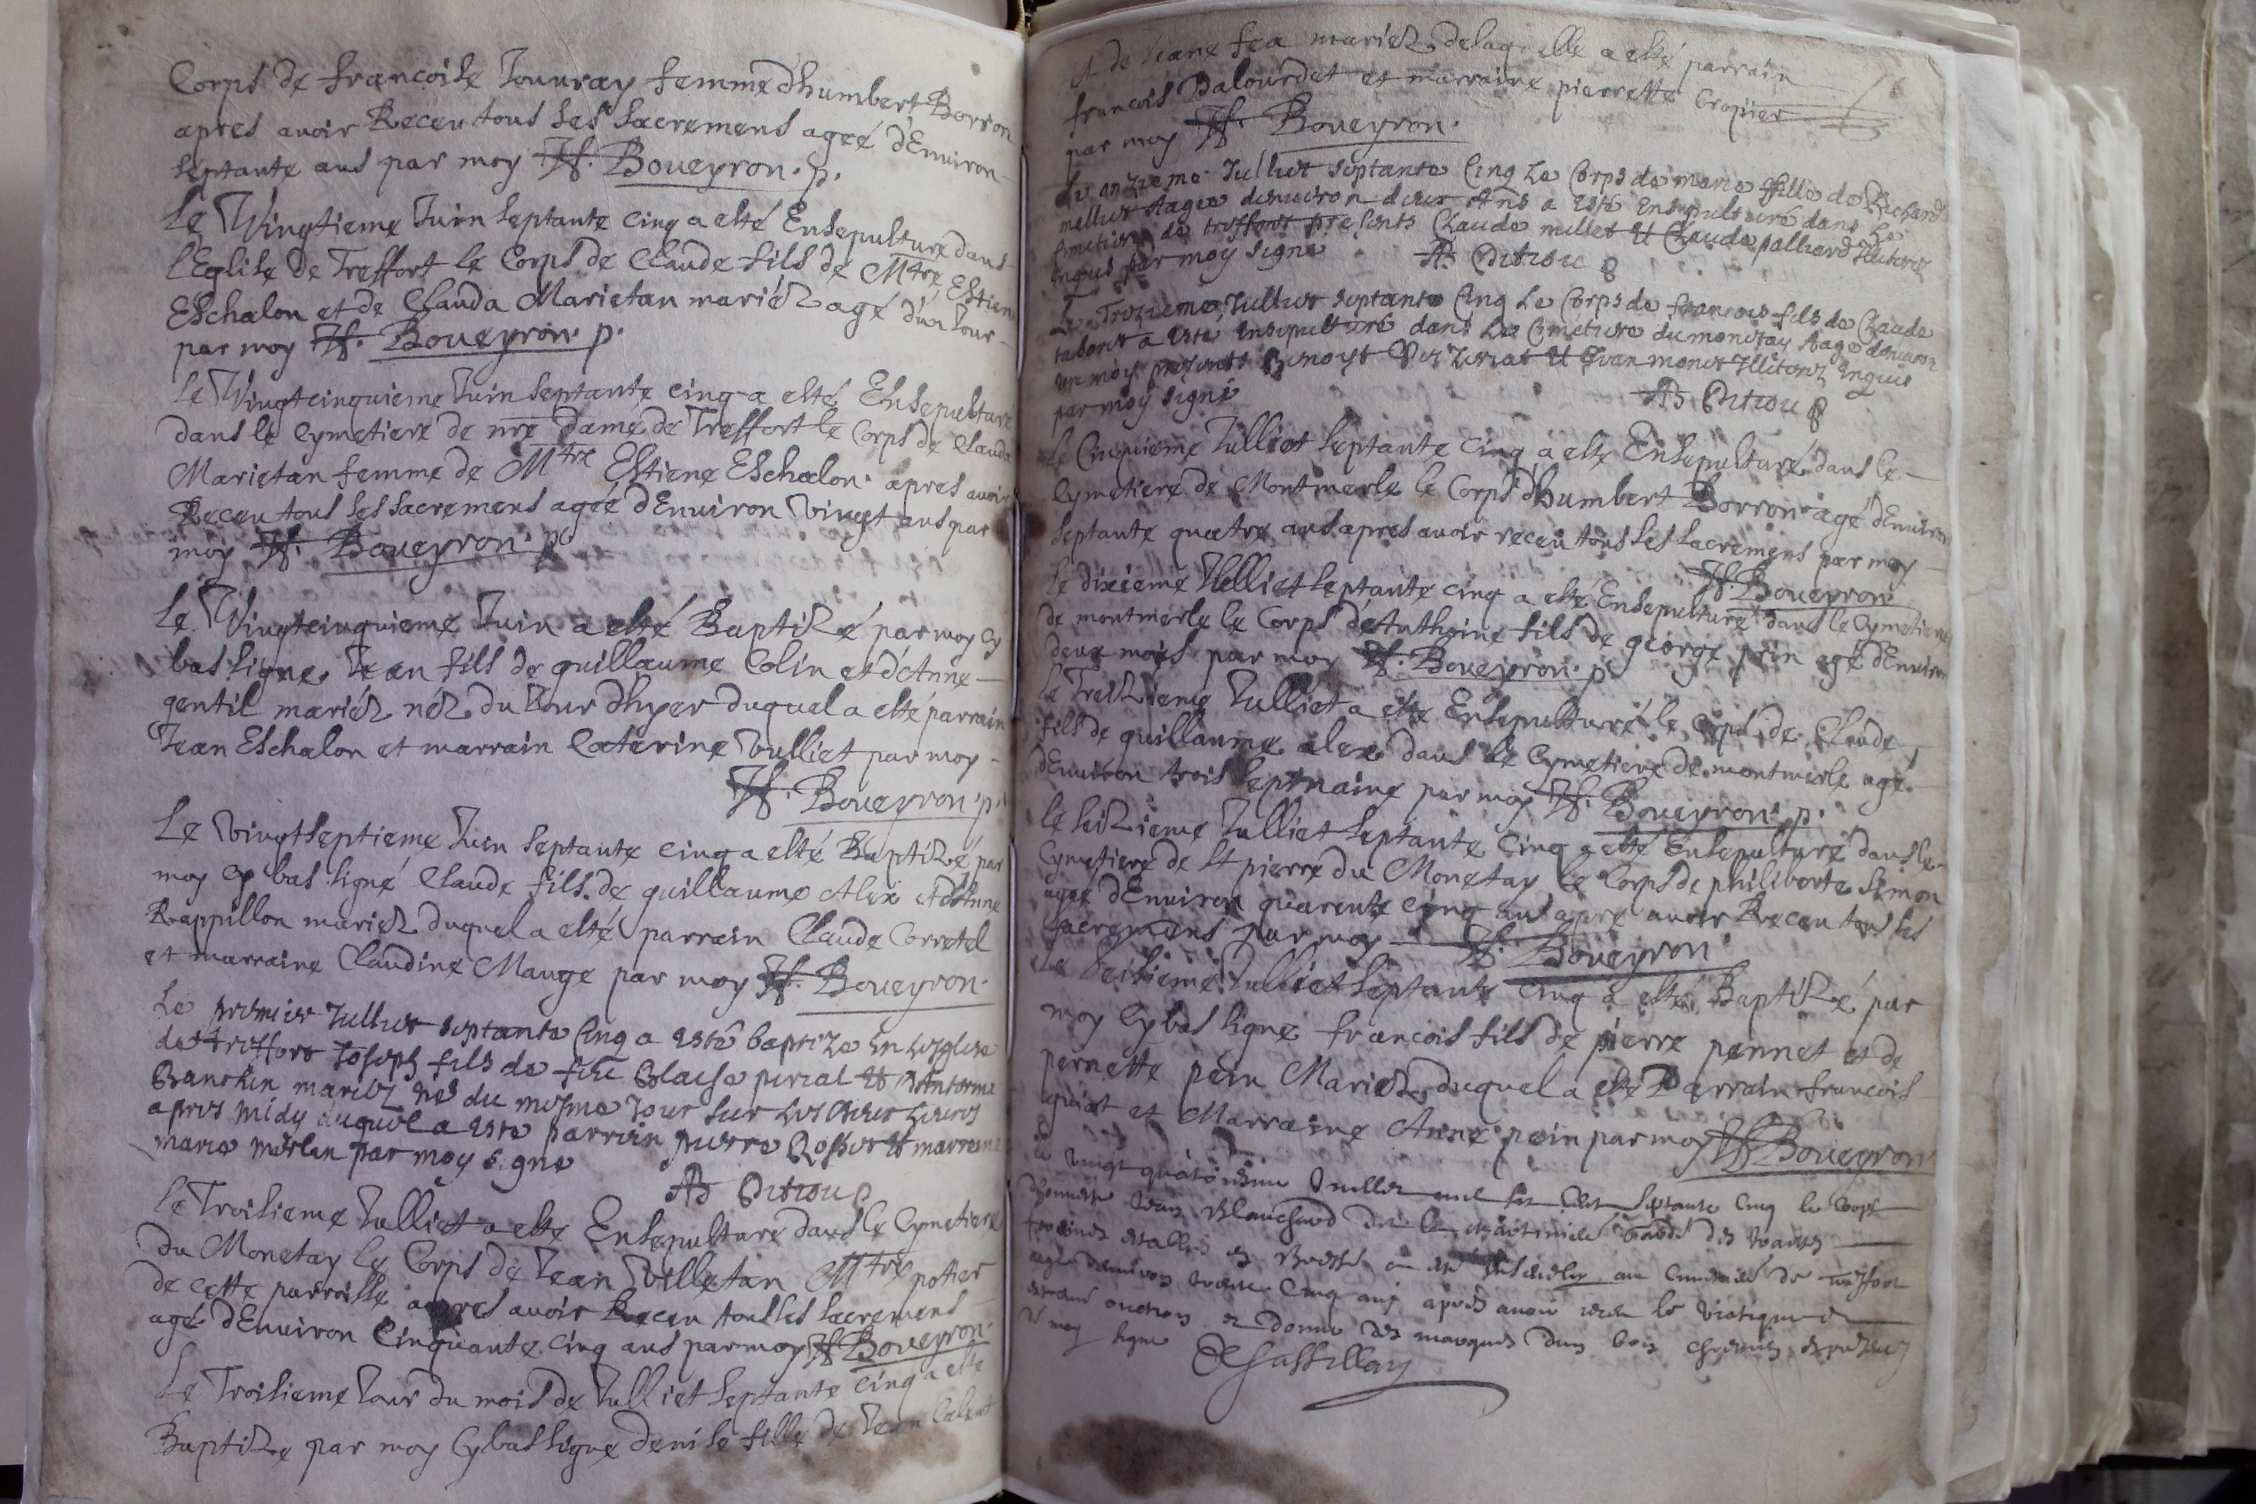 Corps de francoise Jouvray femme d'humbert Borron
apres avoir Receu tous ses sacremens ageé d'Environ
septante ans par moy H. Boueyron. p.
Le Vingtieme Juin septante cinq a esté Ensepulturé dans
l'Eglise de Treffort le Corps de Claude fils de Mtre Estiene
Eschalon et de Clauda Marietan mariéz agé d'un Jour
par moy H. Boueyron. p.
le Vingtcinquieme Juin septante cinq a esté Ensepulturé
dans le Cymetiere de nre dame de Treffort le Corps de Clauda
Marietan femme de Mtre Estiene Eschalon. apres avoir
Receu tous ses sacremens ageé d'Environ vingt ans par
moy H. Boueyron. p
Le Vingtcinquieme Juin a esté Baptizé par moy Cy
bas signe Jean fils de guillaume Colin et d'Anne
gentil mariéz néz du Jour d'hyer duquel a esté parrain
Jean Eschalon et marrain Caterine Vulliet par moy
H. Boueyron. p.
Le vingtseptieme Juin septante cinq a esté Baptizé par
moy Cy bas signé Claude fils de guillaume Alex et d'Anne
Rappillon mariez duquel a esté parrain Claude Corretel
et marraine Claudine Mauge par moy H. Boueyron.
Le premier Jullet septante Cinq a esté baptize en Leglise
de treffort Joseph fils de feu Blaise perial et Antoine
Banchin mariez nés du mesme Jour sur les deux heures
apres midy duquel a este parrein pierre et marreine
marie merlan par moy signe
le Troisieme Julliet a esté Ensepulturé dans le Cymetiere
du Monetay le Corps de Jean Villetan Mtre potier
de cette parroisse apres avoir Receu tous ses sacremens
agé d'Environ Cinquante cinq ans par moy H. Boueyron.
Le Troisieme Jour du mois de Julliet septante cinq a esté
Baptizée par moy Cybas signe denise fille de Jean
et de Jeane fea mariez delaquelle a esté parrain
francois Dalourdet et marraine pierrette Cropier
par moy H. Boueyron.
Le onzieme Jullet septante Cinq Le Corps de marie fille de Richard
millet Aagee denuiron deux Ans a esté ensepulturé dans Le
Cmetiere de treffort presents Claude millet et Claude palliard Illiterez
enquis par moy signe
Le Trezieme Jullet septante Cinq Le Corps de francois fils de Claude
tabouret a este ensepulturé dans Le Cmetiere du monetay Aage denuiron
un moy presents Benoyt et Jvan monet Illiterez enquis
par moy signé
Le Cinquieme Julliet septante cinq a esté Ensepulturé dans le
Cymetiere de Montmerle le Corps d'humbert Borron agé d'Environ
septante quatre ans apres avoir receu tous ses sacremens par moy
H. Boueyron
le dixieme Julliet septante cinq a esté Ensepulturé dans le Cymetiere
de montmerle le Corps d'Anthoine fils de george pein agé d'Environ
deux mois par moy H. Boueyron. p
le Treizieme Julliet a esté Ensepulturé le Corps de Claude
fils de guillaume alex dans le Cymetiere de montmerle agé
d'Environ trois septmaine par moy H. Boueyron. p.
le seizieme Julliet septante Cinq a esté Ensepulturé dans le
Cymetiere de st pierre du Monetay le Corps de philiberte Simon
agée d'Environ quarente cinq ans apre avoir Receu tous ses
sacremens par moy H. Boueyron
Le Julliet septante cinq a esté Baptizé par
moy Cybas signé francois fils de pierre pennet et de
pernette pein Mariez duquel a esté Parrain francois
et Marraine Anne pein par moy H. Boueyron
Le vingt quatriesme Juillet mil six cent septante cinq le Corps
Jean Blanchard
en Bresse a esté au Cimetiere de treffort
aagé denuiron trente Cinq ans apres avoir receu le viatique et
onction et donné des marques d'un bon chretien
moy signe